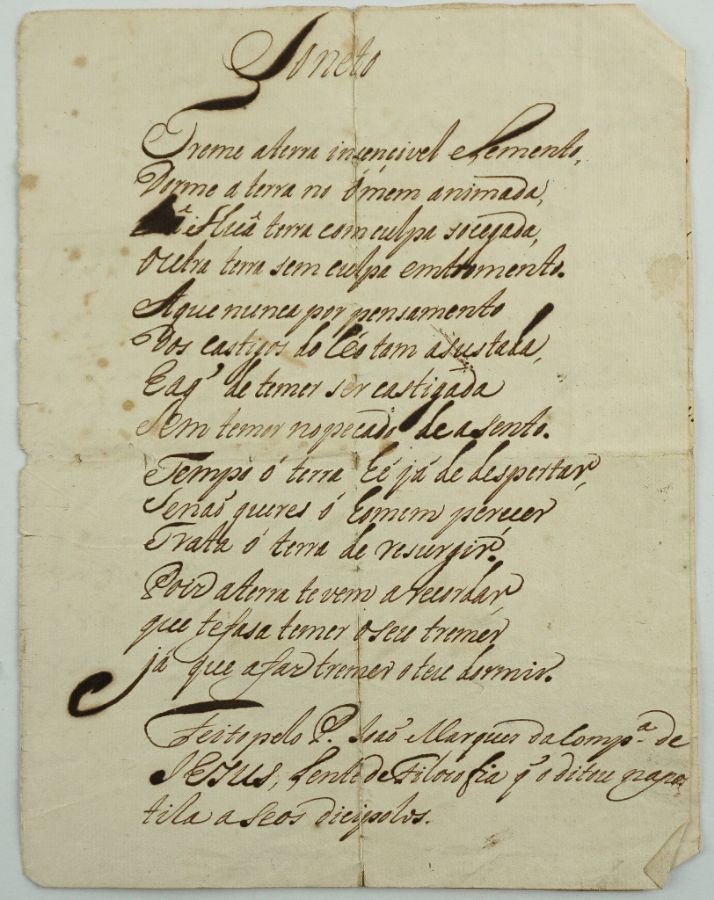 Soneto
Treme aterra insencivel elemento,
Dorme a terra no ómem animada,
Huã terra com culpa socegada,
Outra terra sem culpa emtromento.
Aque nunca por pensamento
Dos castigos do Céo tam asustada,
Eaq' de temer ser castigada
Sem temer nopecado de a sento.
Tempo ó terra hé já de despertar,
Senaõ queres ó homem perecer
Trata ó terra de resurgir.
Poiz aterra te vem a recordar
que tefasa temer o seu tremer
já que afaz tremer o teu dormir.
Feito pelo P. Joaõ Marques da Comp.ª de
JESUS, Lente de Filosofia q' o ditou napos
tila a seos dicipolos.